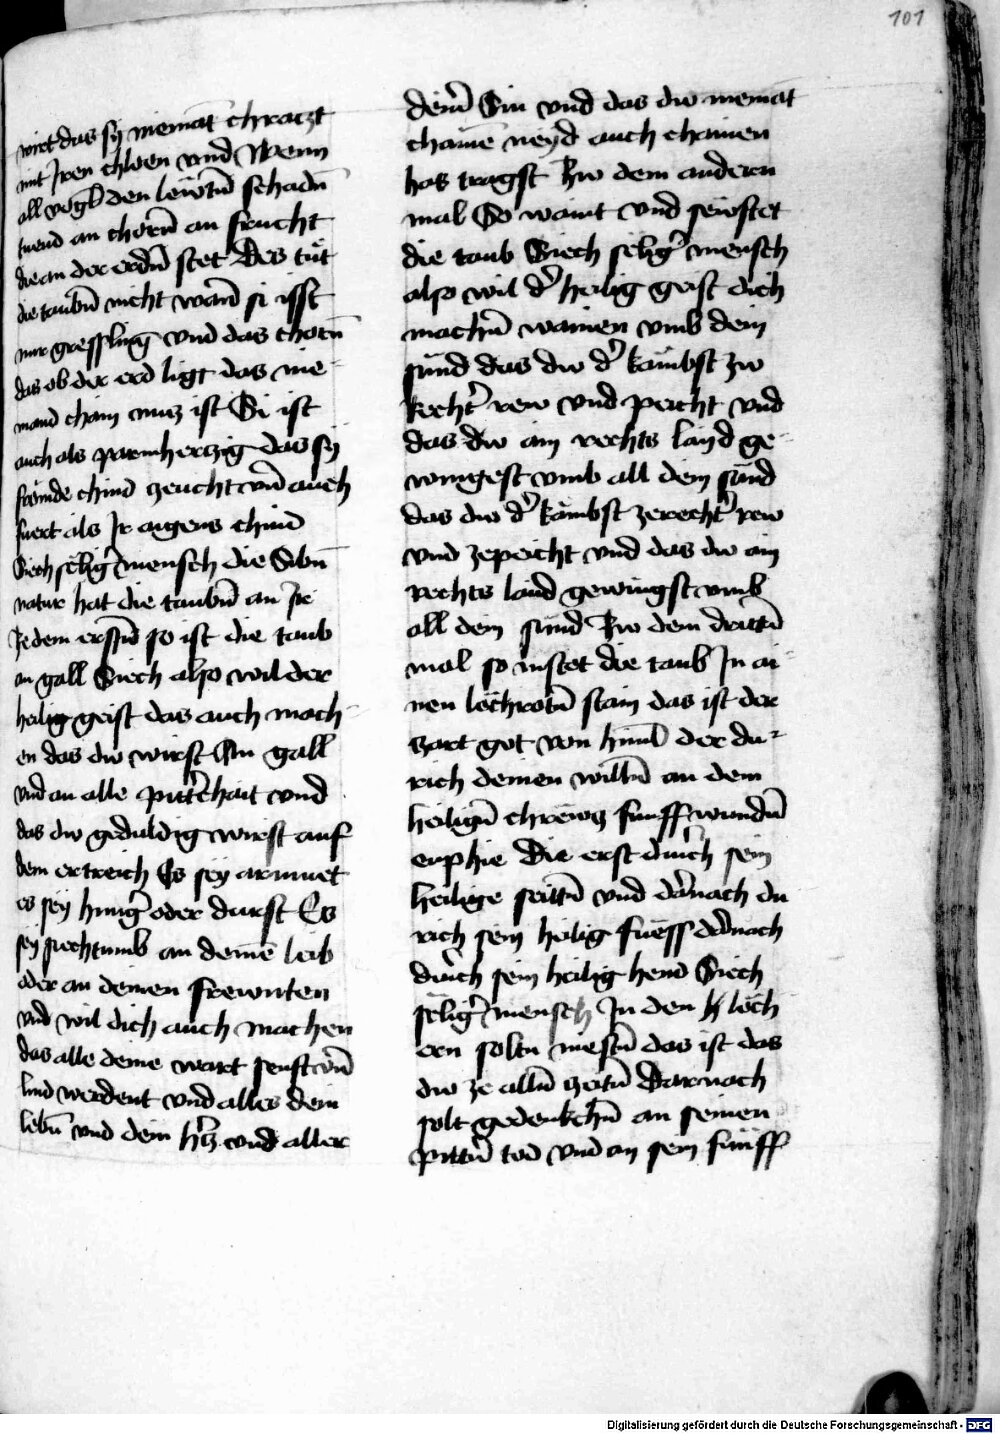 101
wirt das sy niemāt chraczt
mit Iren chloen vnd Wenn
all vogl den lewtn̄ schadn̄
tuend an chorn̄ an frucht
die an der erdn̄ stet Des tut
die taubn̄ nicht wan̄ si isst
nur gressling vnd das chorn̄
das ob der erd ligt das nie-
mand chain nucz ist Si ist
auch als parmherczig das sy
frömde chind zeucht vn̄ auch
fuert als Ir aigens chind
Siech seliḡ mensch die Sibn̄
natur hat die taubn̄ an Ir
Ze dem erstn̄ so ist die taub
an gall Siech also wil der
heilig geist das auch mach-
en das du wirst An gall
vnd an alle pitt̄chait vnd
das du geduldig wirst auf
dem ertreich Es sey armuet
es sey hunḡ oder durst Es
sey siechtumb an deinē leib
oder an deinen frewnten
vnd wil dich auch machen
das alle deine wart senft vn̄
lind werdent vnd alles dein
lebn̄ vnd dein h̄cz vnd aller
dein̄ Sin vnd das du niemāt
chainē neyd auch chainen
has tragst Zw dem andern
mal So waint vnd sewftet
die taub Siech seliḡ mensch
also wil d̄ heilig geist dich
machn̄ wainen vmb dein
sund das du d̄ kambst zw
Recht̄ rew vnd peicht vnd
das du ain rechts layd ge-
wingest vmb all dein sund
das du d̄ kambst ze recht̄ rew
vnd ze peicht vnd das du ain
rechts laid gewingst vmb
all dein sund Zw dem drittn̄
mal so nistet die taub In ai-
nen löchrotn̄ stain das ist der
zart got von himl̄ der du-
rich deinen willn̄ an dem
heilign̄ chrewcz funff wundn̄
enphie Die erst durch sein
heilige seittn̄ vnd d̄nach du
rich sein heilig fuess d̄nach
durch sein heilig hend Siech
seliḡ mensch In den löch
ern soltu nistn̄ das ist das
du ze alln̄ zeitn̄ Darnach
solt gedenkchn̄ an seinen
pittn̄ tod vnd an sein funff
Digitalisierung gefördert durch die Deutsche Forschungsgemeinschaft - DFG